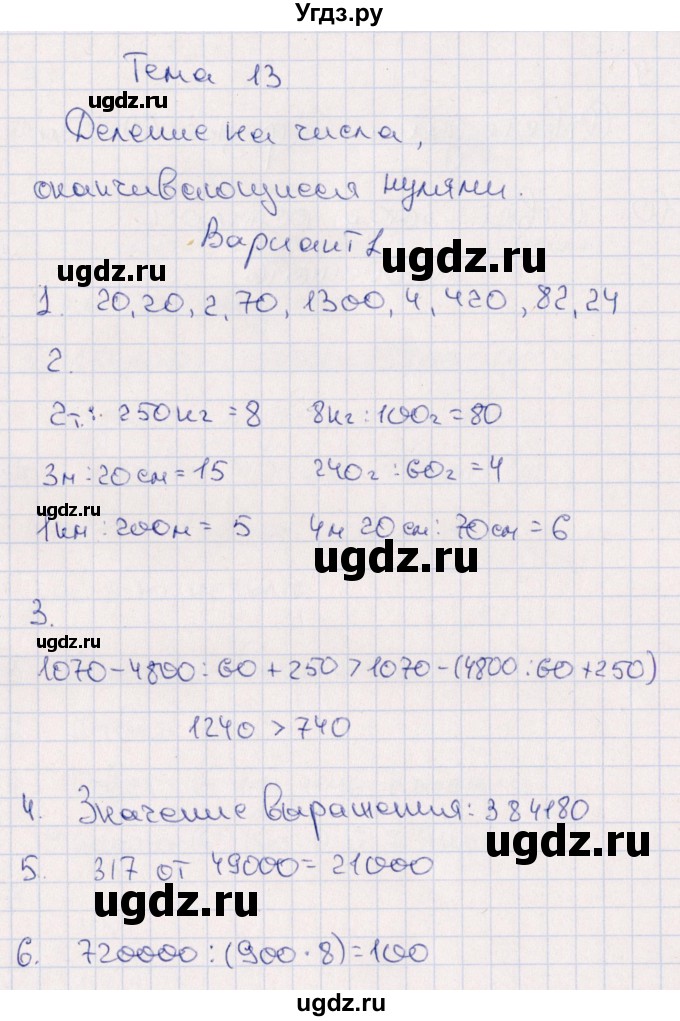 Угдз.ру
Тема 13
ugdz.ru
Деление на числа,
оканчивающиеся нулями.
Вариант 1
ugdz.ru
ugdz.ru
1. 20, 20, 2, 70, 1300, 4, 420, 82, 24
ugdz.ru
2.
2т : 250кг = 8 8кг : 100г = 80
3м : 20см = 15 240г : 60г = 4
ugdz.ru
1км : 200м = 5 4м 20см : 70см = 6
ugdz.ru
3.
ugdz.ru
1070 - 4800 : 60 + 250 > 1070 - (4800 : 60 + 250)
1240 > 740
4. Значение выражения: 384180
ugdz.ru
5. 3/7 от 49000 = 21000
ugdz.ru
6. 720000 : (900 · 8) = 100
ugdz.ru